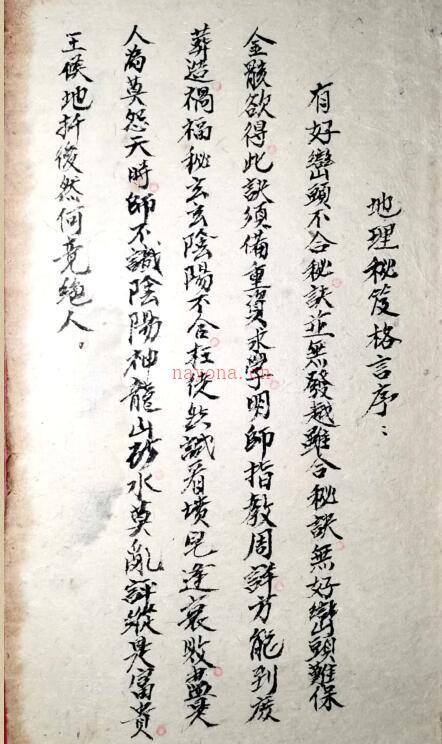 地理秘笈格言序:
有好巒頭不合秘訣並無發越雖合秘訣無好巒頭難保
金骸欲得此訣須備重資求學明師指教周詳方能到度
葬造禍福秘玄玄陰陽不合枉徒然看墳逢衰敗盡是
人為莫怨天時師不識陰陽神龍山砂水莫亂評縱是富貴
王侯地拆後然何竟絕人。
nayona.cn